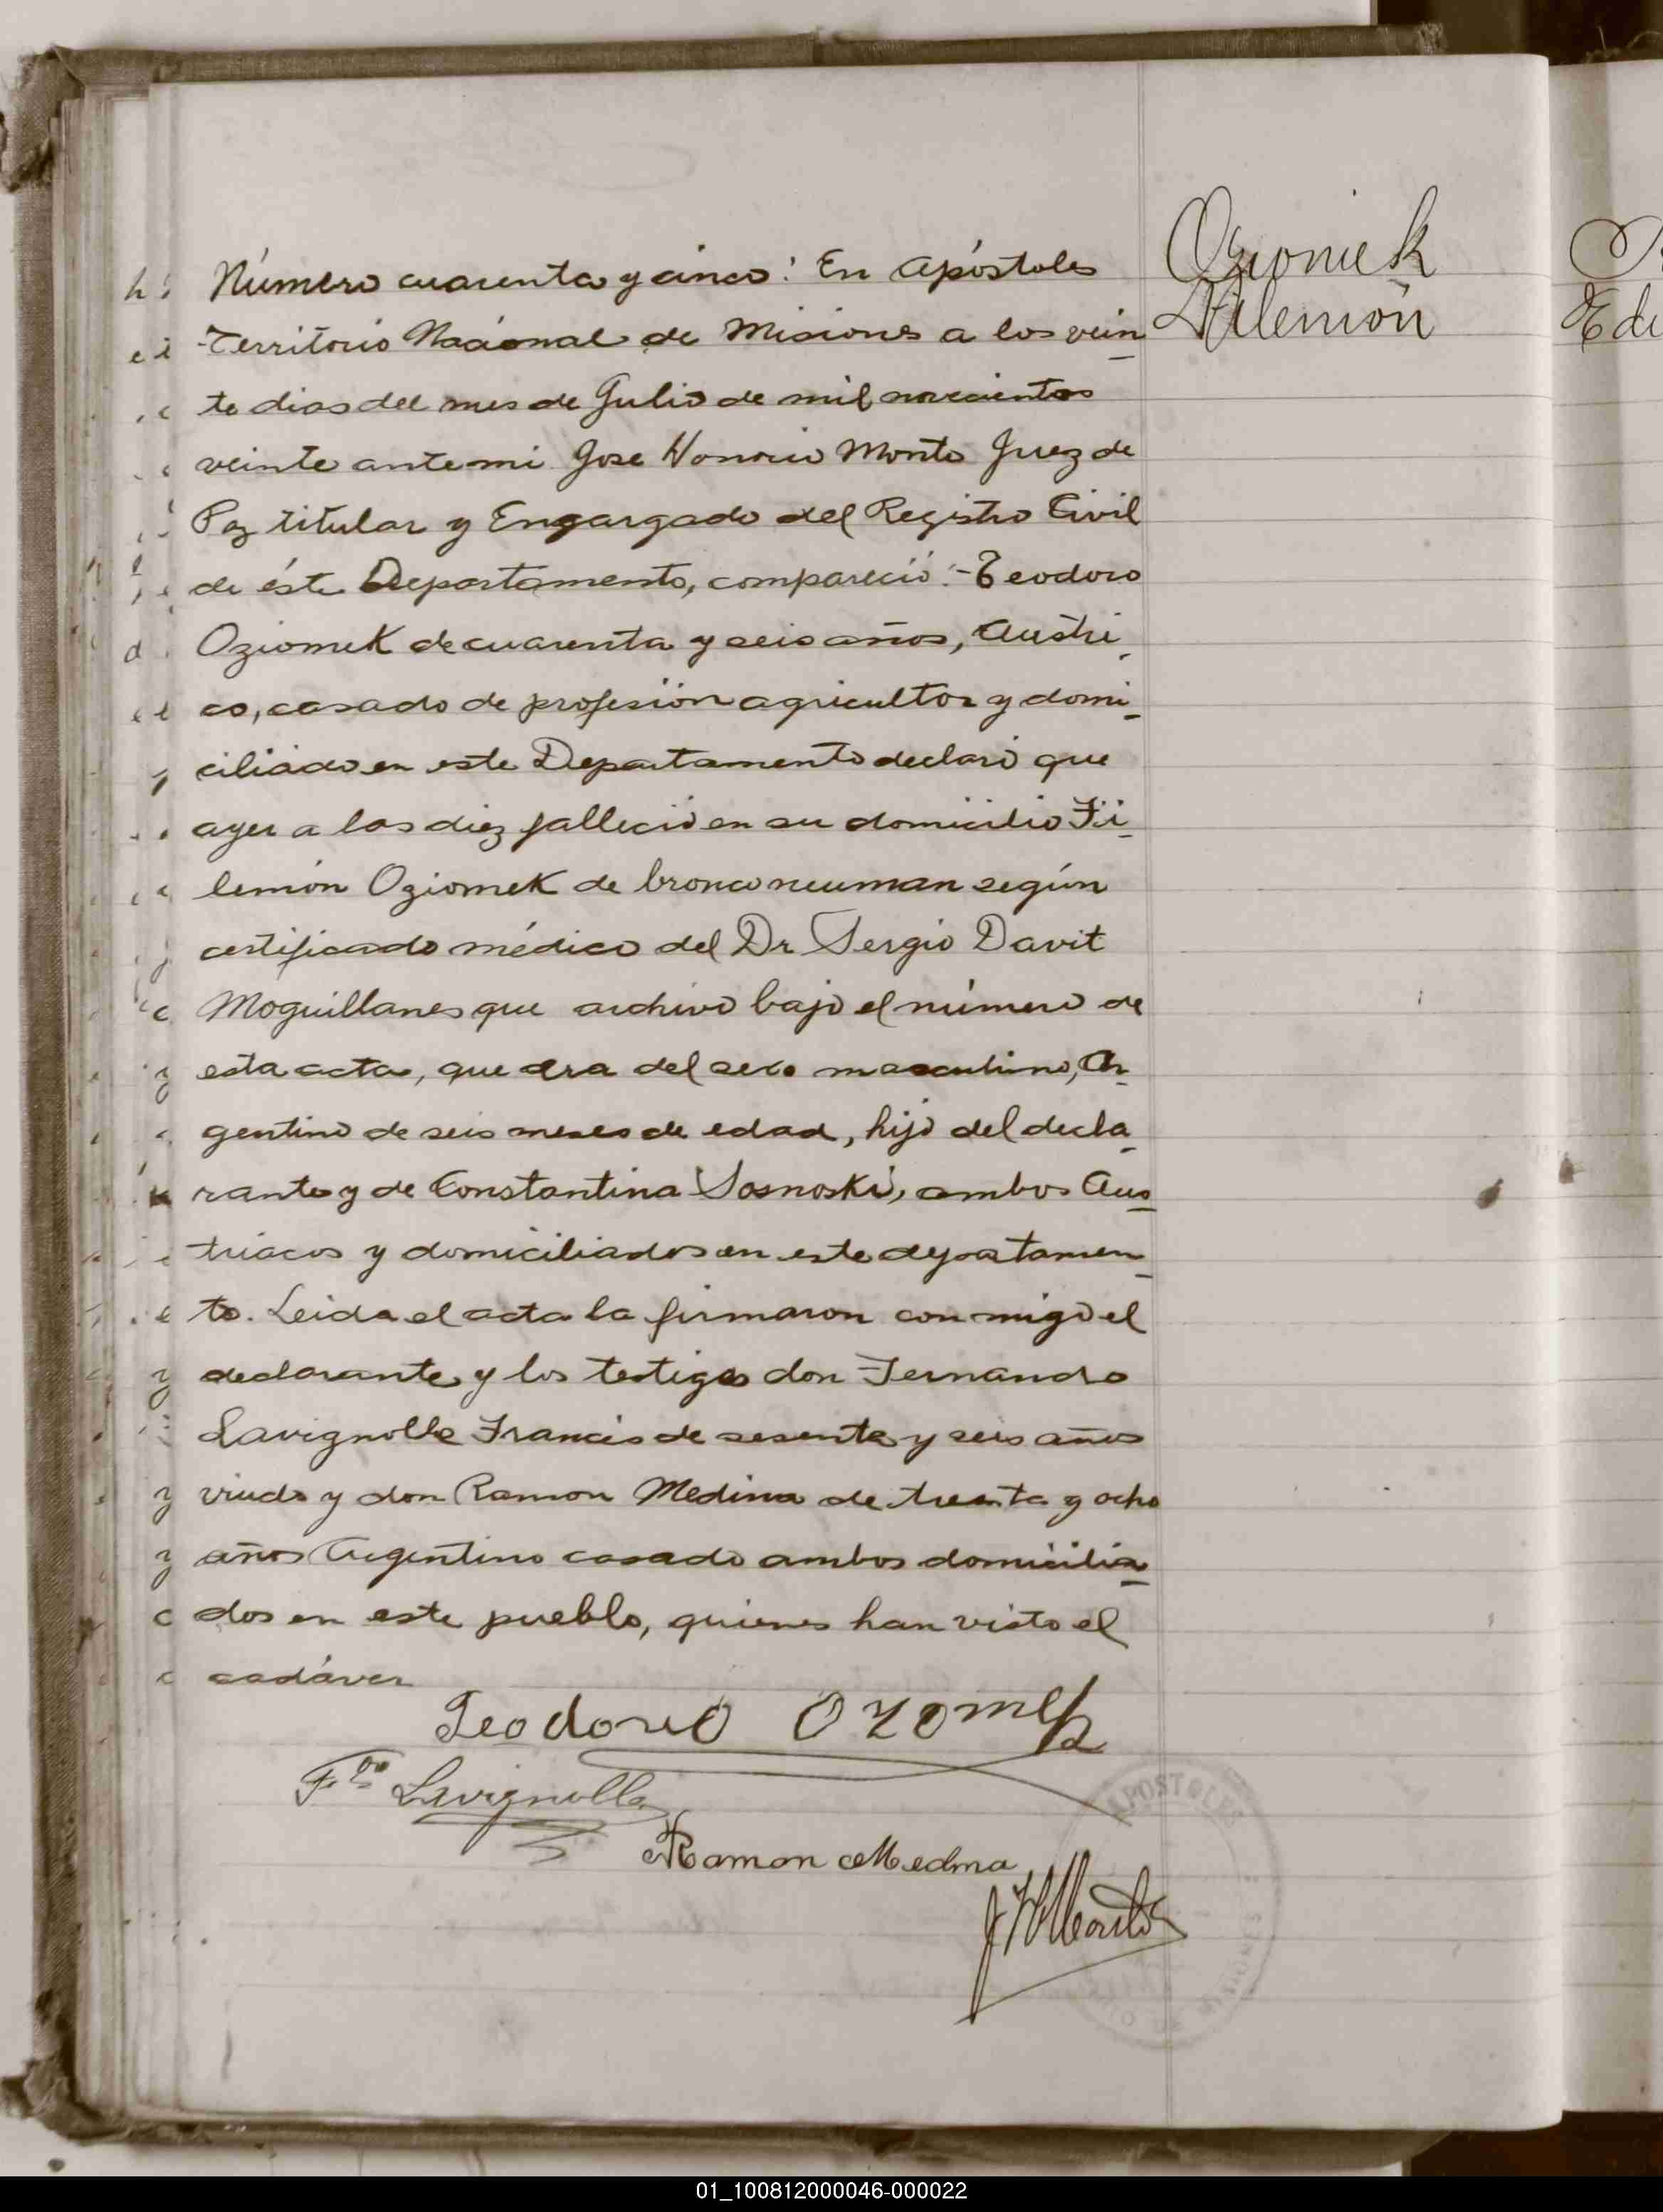 Oziomek
Filemón
Número cuarenta y cinco: En Apóstoles
Territorio Nacional de Misiones a los vein
te dias del mes de Julio de mil novecientos
veinte ante mi Jose Honorio Monto Juez de
Paz titular y Engargado del Registro Civil
de éste Departamento, compareció:- Teodoro
Oziomek de cuarenta y seis años, Austri
co, casado de profesión agricultor y domi
ciliado en este Departamento declaró que
ayer a las diez falleció en su domicilio Fi
lemón Oziomek de bronconeuman según
certificado médico del Dr Sergio Davit
Moguillanes que archivo bajo el número de
esta acta, que era del sexo masculino, Ar
gentino de seis meses de edad, hijo del decla
rante y de Constantina Sosnoski, ambos Aus
triacos y domiciliados en este departamen
to. Leida el acta la firmaron conmigo el
declarante y los testigos don Fernando
Lavignolle Francés de sesenta y seis años
viudo y don Ramon Medina de treinta y ocho
años Argentino casado ambos domicilia
dos en este pueblo, quienes han visto el
cadáver
Teodoro Ozomek
Fdo Lavignolle
Ramon Medina
J H Monto
APOSTOLES
01_100812000046-000022